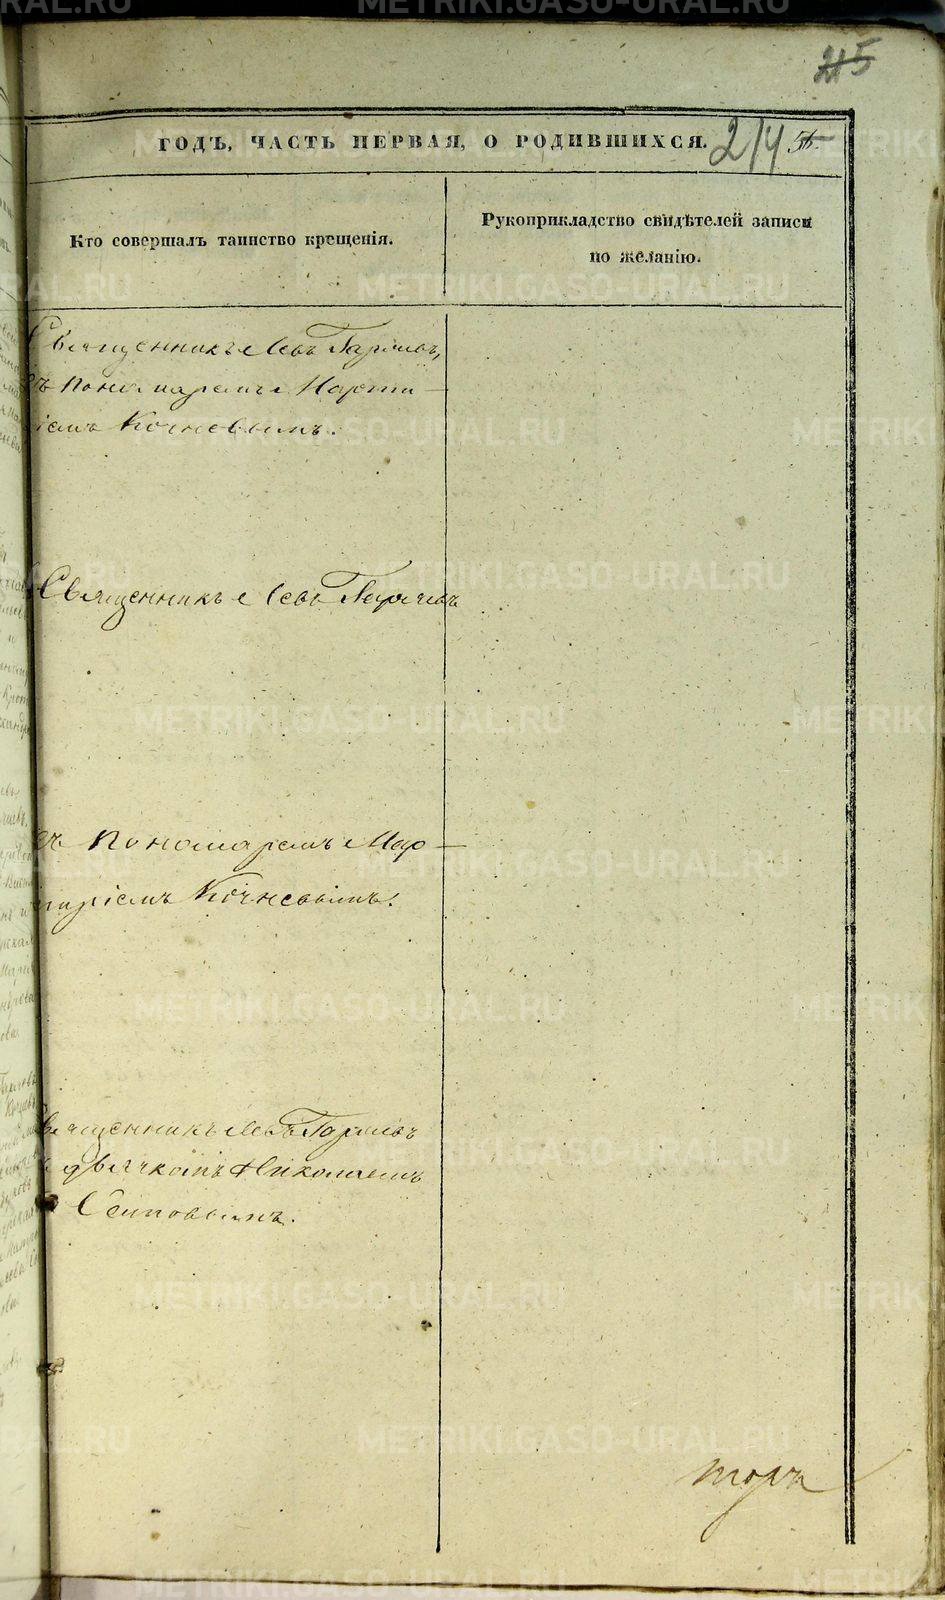 215
ГОДЪ, ЧАСТЬ ПЕРВАЯ, О РОДИВШИХСЯ.
214
Кто совершалъ таинство крещенія.
Рукоприкладство свидѣтелей записи
по желанію.
Священникъ Левъ
съ пономаремъ Марти-
ріемъ Кочневымъ.
Священникъ Левъ
съ пономаремъ Мар-
тиріемъ Кочневымъ.
Священникъ Левъ
съ дьячкомъ Николаемъ
METRIKI.GASO-URAL.RU